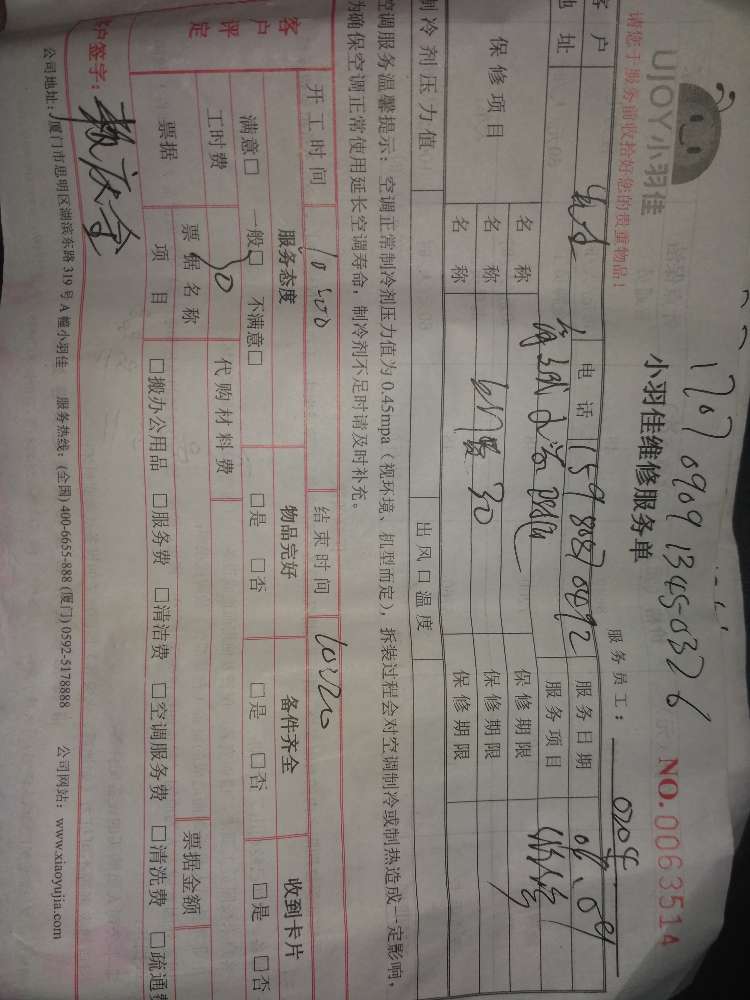 1707 0909 1345-0326
UJOY小羽佳
小羽佳维修服务单
NO.0063514
请您于服务前收拾好您的贵重物品!
服务员工: 0204
客户 电话 15980870492 服务日期
地址 服务项目
保修项目 名称 保修期限
名称 30 保修期限
名称 保修期限
制冷剂压力值 出风口温度
空调服务温馨提示: 空调正常制冷剂压力值为0.45mpa(视环境、机型而定), 拆装过程会对空调制冷或制热造成一定影响,
为确保空调正常使用延长空调寿命, 制冷剂不足时请及时补充。
开工时间 10:00 结束时间 10:20
客户评定 服务态度 物品完好 备件齐全 收到卡片
满意□ 一般□ 不满意□ □是 □否 □是 □否 □是 □否
工时费 30 代购材料费
票据 票据名称 票据金额
项目 □搬办公用品 □服务费 □清洁费 □空调服务费 □清洗费 □疏通费
户签字:
公司地址: 厦门市思明区湖滨东路319号A幢小羽佳 服务热线: (全国) 400-6655-888 (厦门) 0592-5178888 公司网站: www.xiaoyujia.com